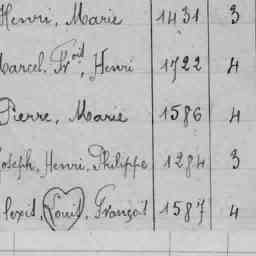 Henri, Marie 1431 3
Marcel, Fr^ois, Henri 1722 4
Pierre, Marie 1586 4
Joseph, Henri, Philippe 1284 3
lexis, Louis, François 1587 4